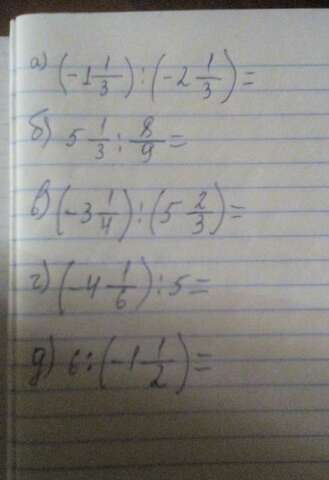 а) (-1 1/3) : (-2 1/3) =
б) 5 1/3 : 8/9 =
в) (-3 1/4) : (5 2/3) =
г) (-4 1/6) : 5 =
д) 6 : (-1 1/2) =